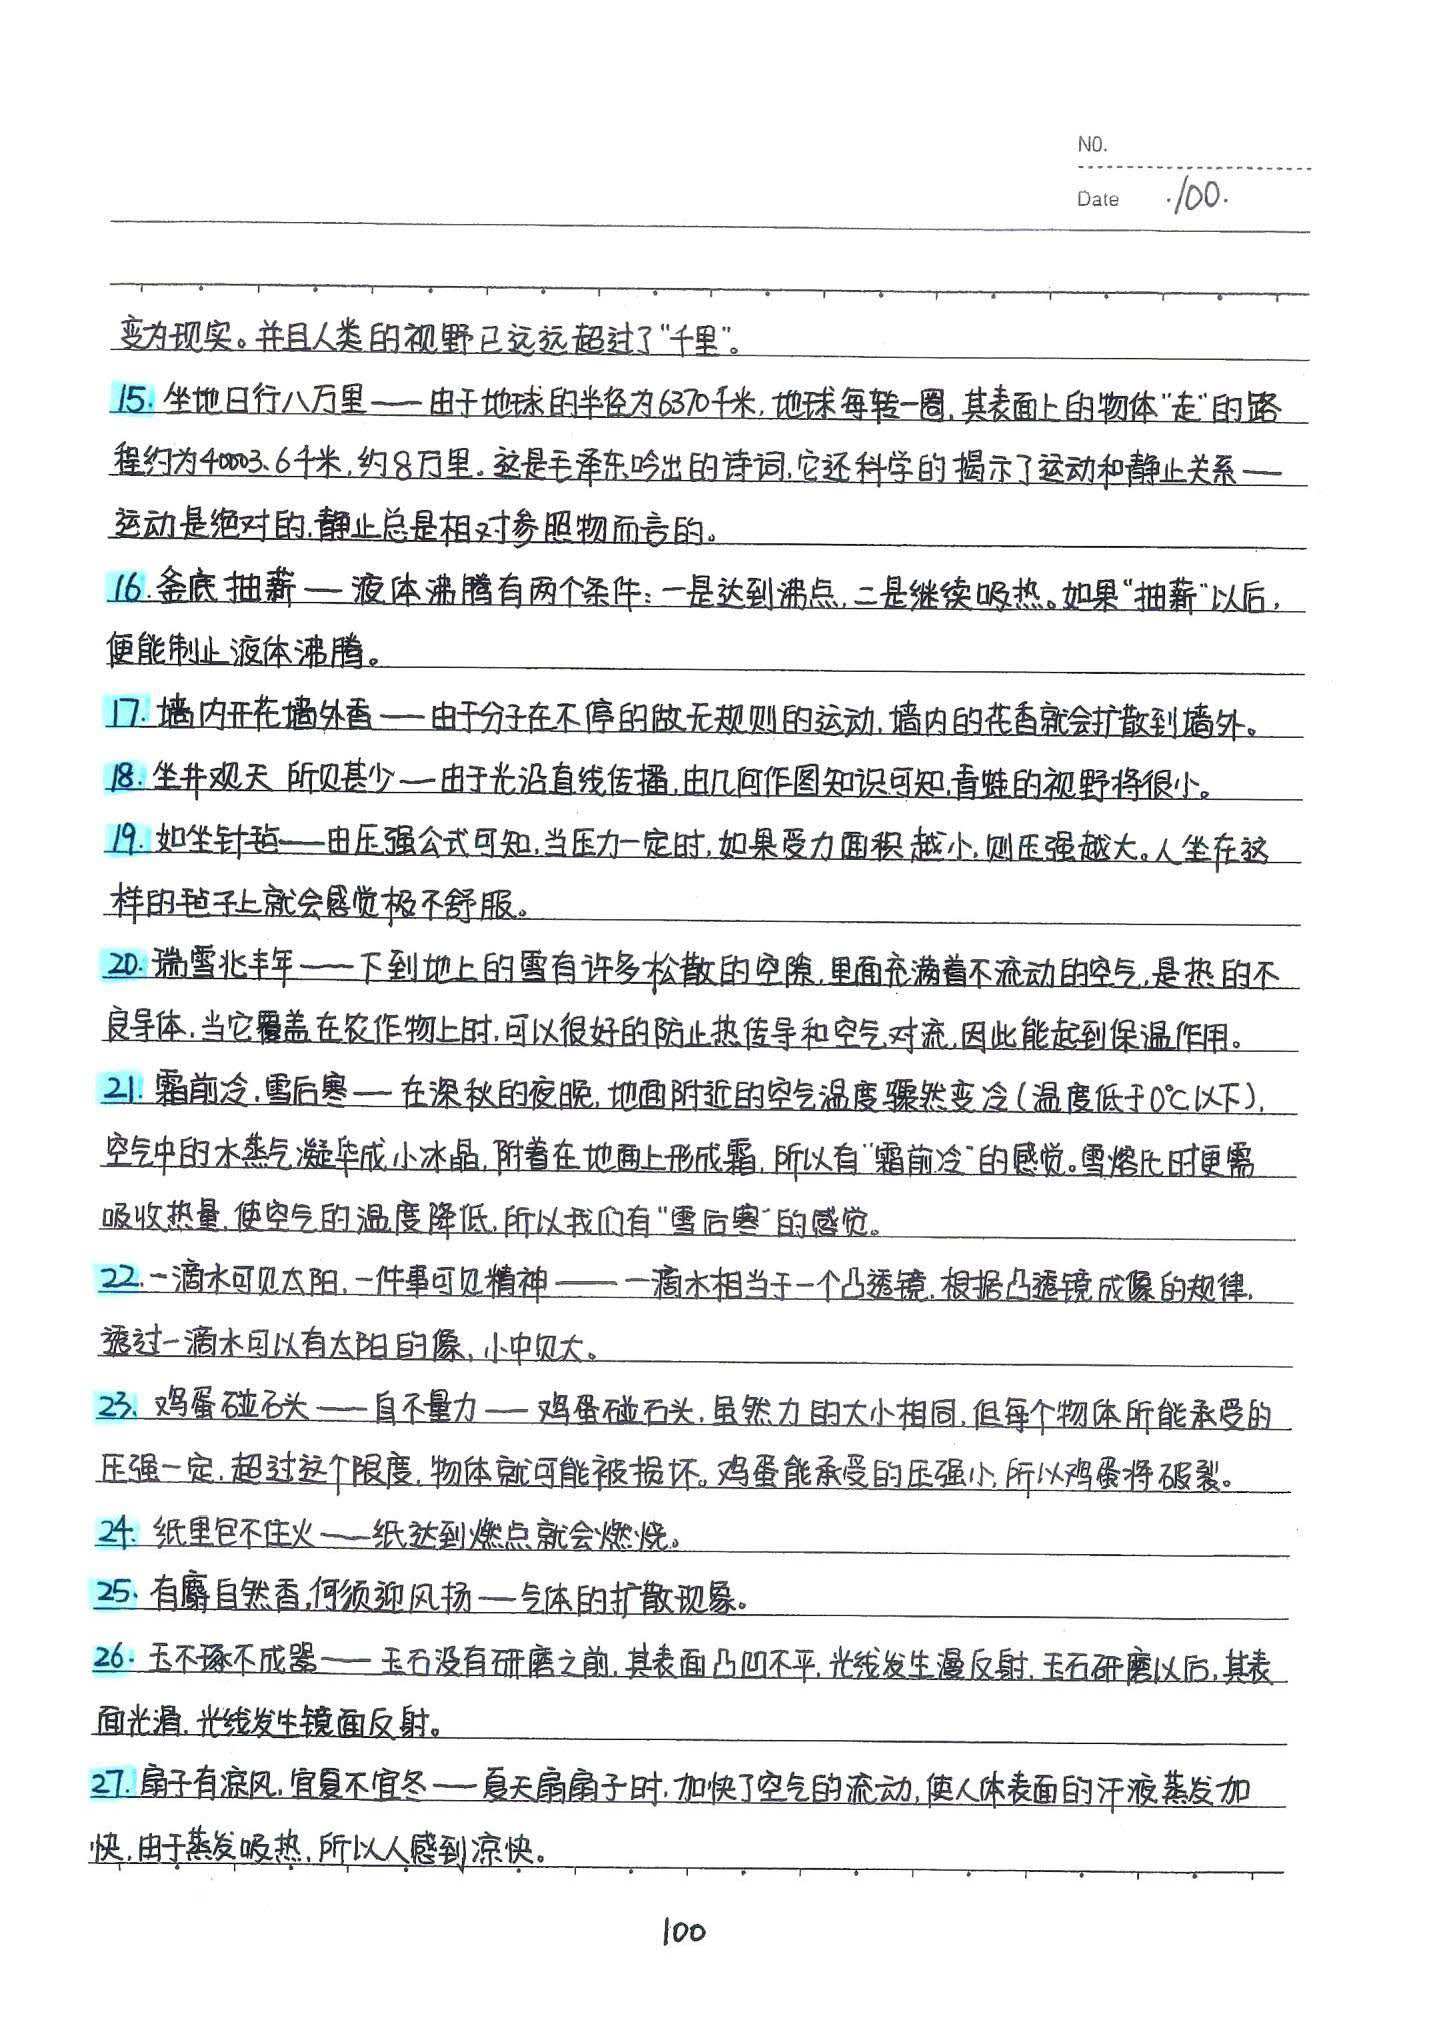 NO.
Date ./00.
变为现实。并且人类的视野已远远超过了"千里"。
15. 坐地日行八万里——由于地球的半径为6370千米,地球每转一圈,其表面上的物体"走"的路
程约为40003.6千米,约8万里。这是毛泽东吟出的诗词,它还科学的揭示了运动和静止关系——
运动是绝对的,静止总是相对参照物而言的。
16. 釜底抽薪——液体沸腾有两个条件:一是达到沸点,二是继续吸热。如果"抽薪"以后,
便能制止液体沸腾。
17. 墙内开花墙外香——由于分子在不停的做无规则的运动,墙内的花香就会扩散到墙外。
18. 坐井观天 所见甚少——由于光沿直线传播,由几何作图知识可知,青蛙的视野将很小。
19. 如坐针毡——由压强公式可知,当压力一定时,如果受力面积越小,则压强越大。人坐在这
样的毡子上就会感觉极不舒服。
20. 瑞雪兆丰年——下到地上的雪有许多松散的空隙,里面充满着不流动的空气,是热的不
良导体,当它覆盖在农作物上时,可以很好的防止热传导和空气对流,因此能起到保温作用。
21. 霜前冷,雪后寒——在深秋的夜晚,地面附近的空气温度骤然变冷(温度低于0℃以下),
空气中的水蒸气凝华成小冰晶,附着在地面上形成霜,所以有"霜前冷"的感觉。雪熔化时更需
吸收热量,使空气的温度降低,所以我们有"雪后寒"的感觉。
22. 一滴水可见太阳,一件事可见精神——一滴水相当于一个凸透镜,根据凸透镜成像的规律,
透过一滴水可以有太阳的像,小中见大。
23. 鸡蛋碰石头——自不量力——鸡蛋碰石头,虽然力的大小相同,但每个物体所能承受的
压强一定,超过这个限度,物体就可能被损坏。鸡蛋能承受的压强小,所以鸡蛋将破裂。
24. 纸里包不住火——纸达到燃点就会燃烧。
25. 有麝自然香,何须迎风扬——气体的扩散现象。
26. 玉不琢不成器——玉石没有研磨之前,其表面凸凹不平,光线发生漫反射,玉石研磨以后,其表
面光滑,光线发生镜面反射。
27. 扇子有凉风,宜夏不宜冬——夏天扇扇子时,加快了空气的流动,使人体表面的汗液蒸发加
快,由于蒸发吸热,所以人感到凉快。
100